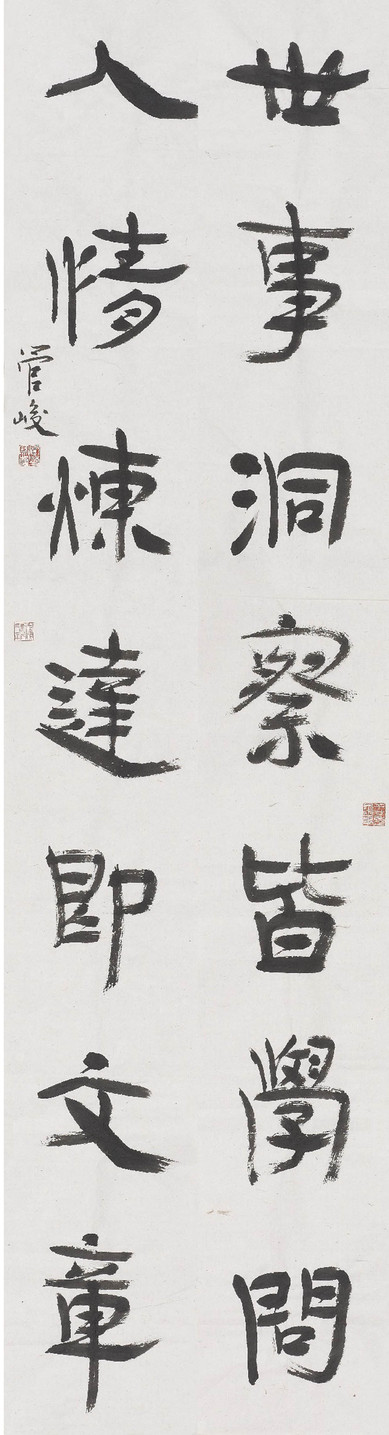 世事洞察皆學問
人情煉達即文章
管峻